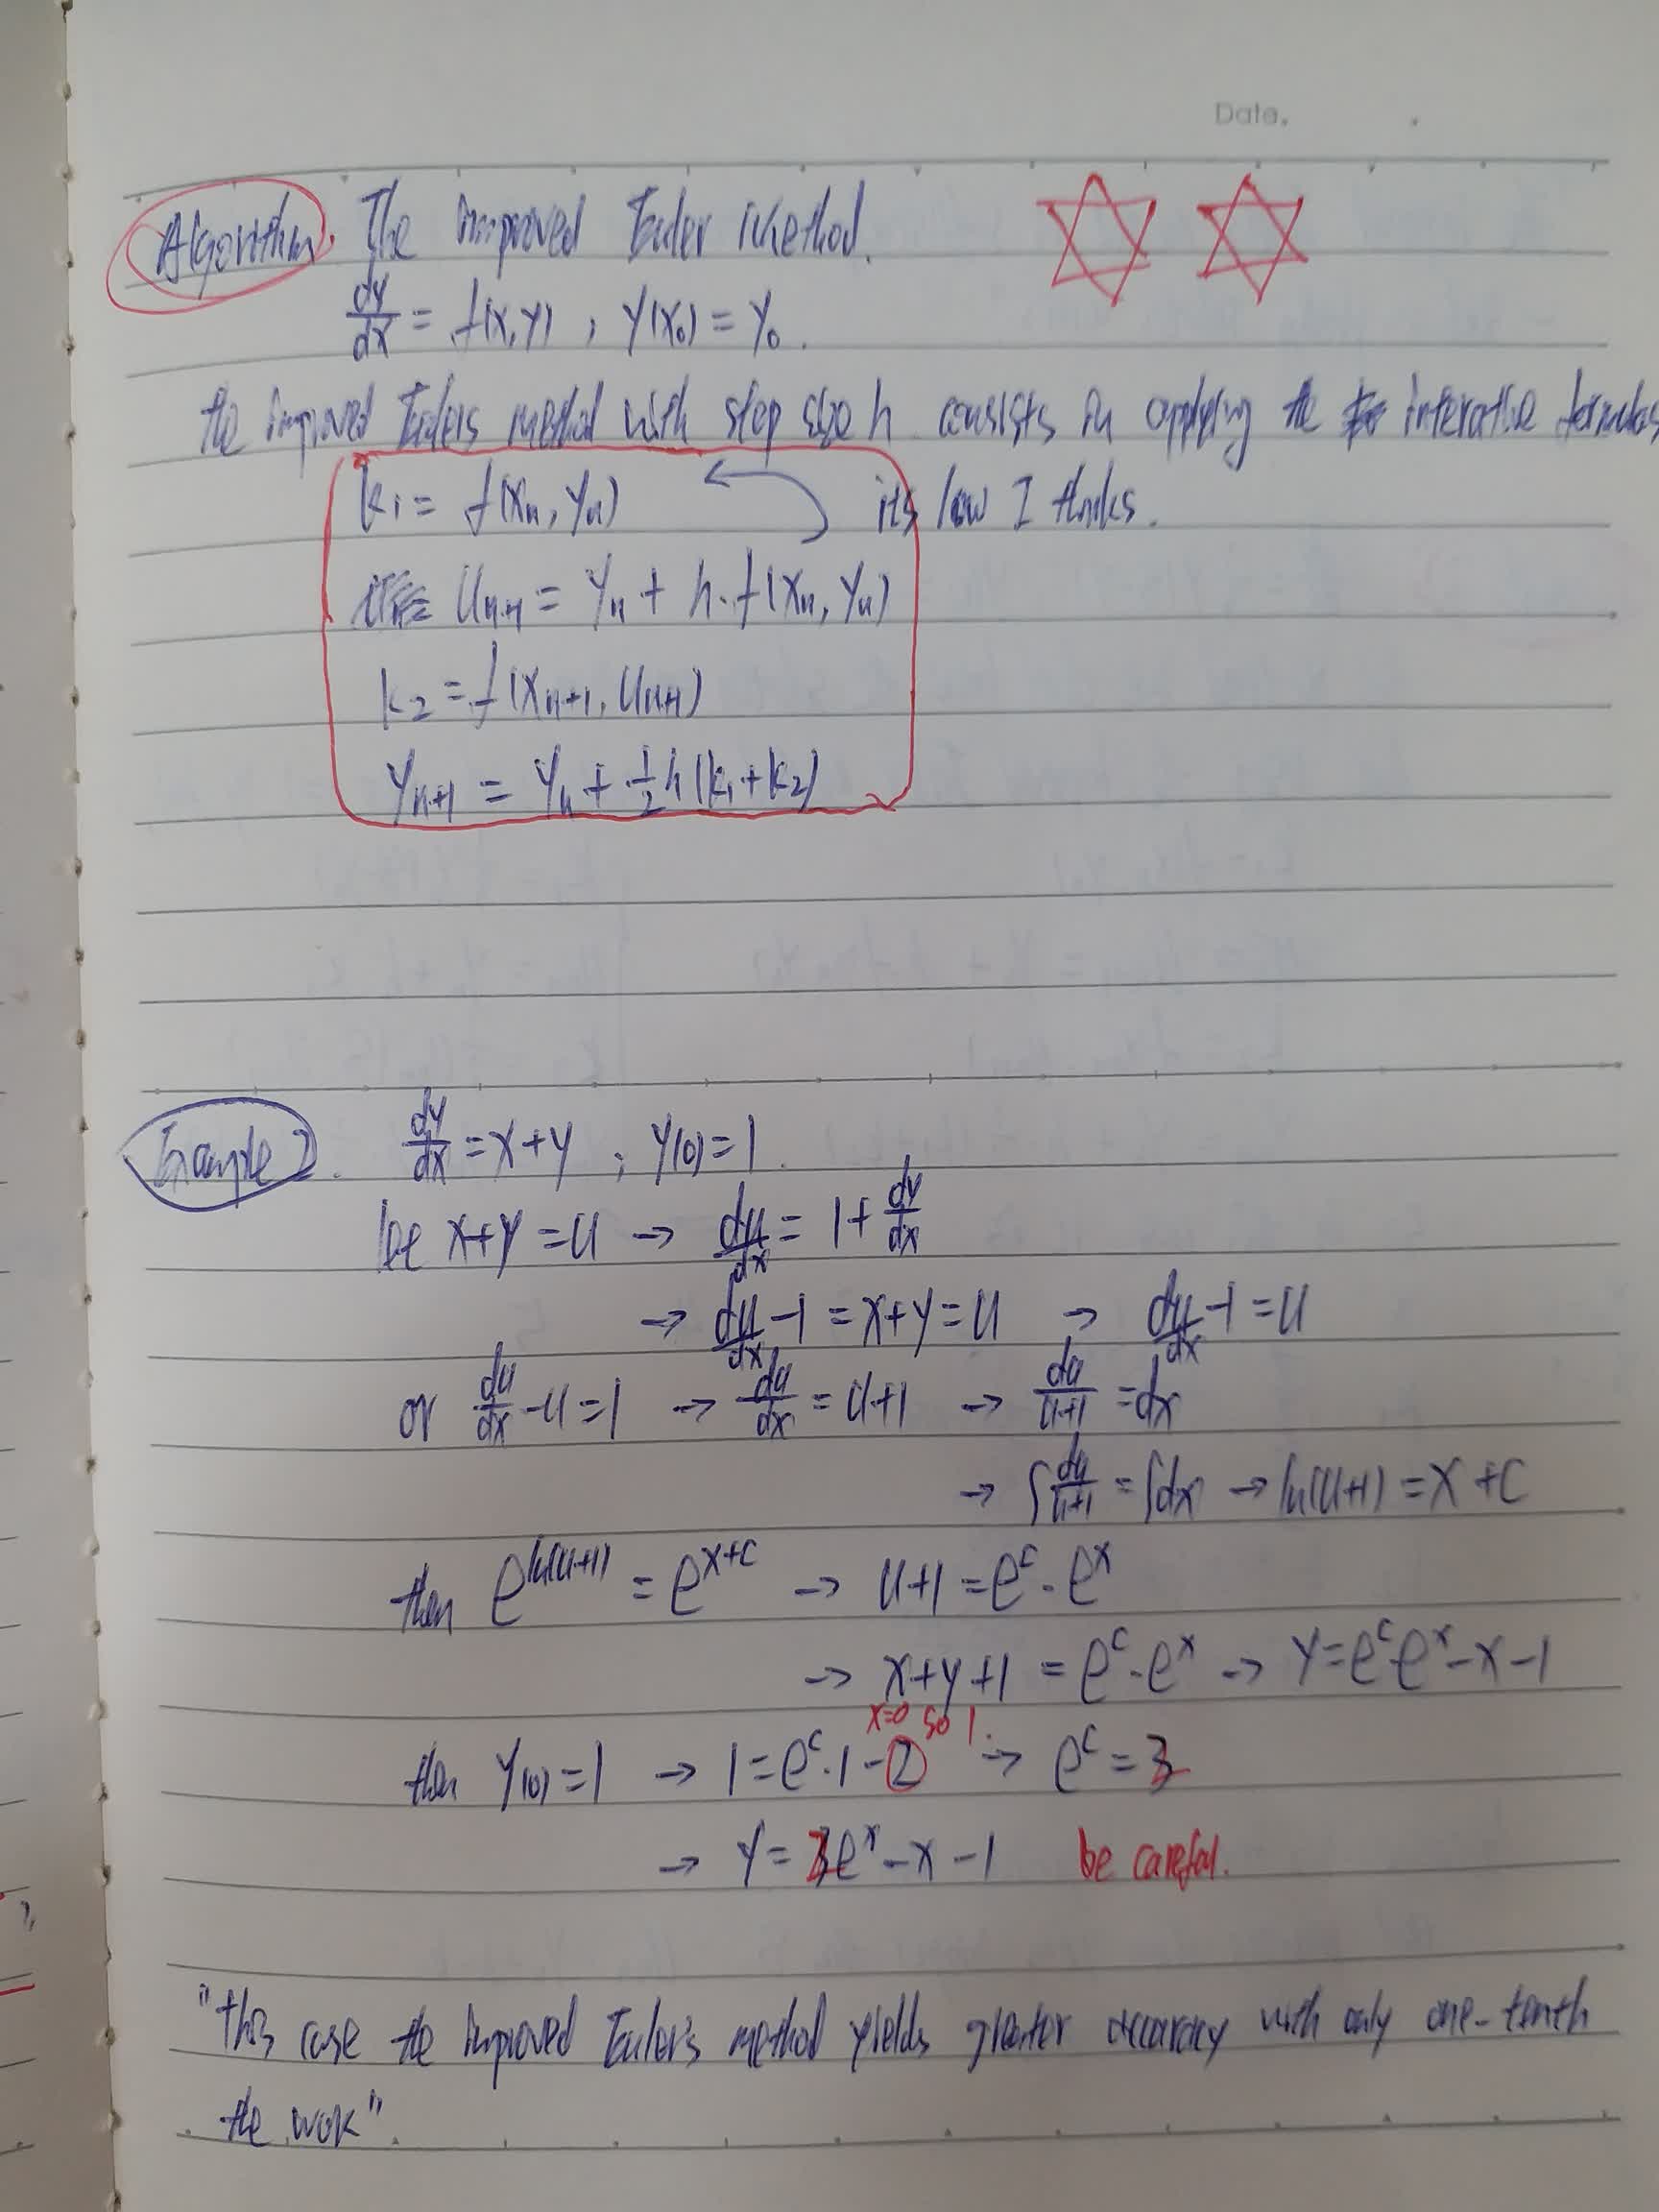 Date.
Algorithm. The improved Euler Method.
dy/dx = f(x,y), y(x₀) = y₀.
the improved Euler's method with step size h consists in applying the interative formulas
k₁ = f(xₙ, yₙ) its law I thinks.
uₙ₊₁ = yₙ + h·f(xₙ, yₙ)
k₂ = f(xₙ₊₁, uₙ₊₁)
yₙ₊₁ = yₙ + ½h(k₁+k₂)
Example 2. dy/dx = x+y, y(0)=1.
be x+y=u → du/dx = 1+dy/dx
→ du/dx -1 = x+y = u → du/dx -1 = u
or du/dx -u=1 → du/dx = u+1 → du/u+1 = dx
→ ∫du/u+1 = ∫dx → ln(u+1) = x+c
then e^ln(u+1) = e^x+c → u+1 = e^c·e^x
→ x+y+1 = e^c·e^x → y=e^c e^x-x-1
x=0 so 1.
then y(0)=1 → 1=e^c·1-2 → e^c=
→ y= e^x-x-1 be careful.
"this case the improved Euler's method yields greater accuracy with only one-tenth
the work"